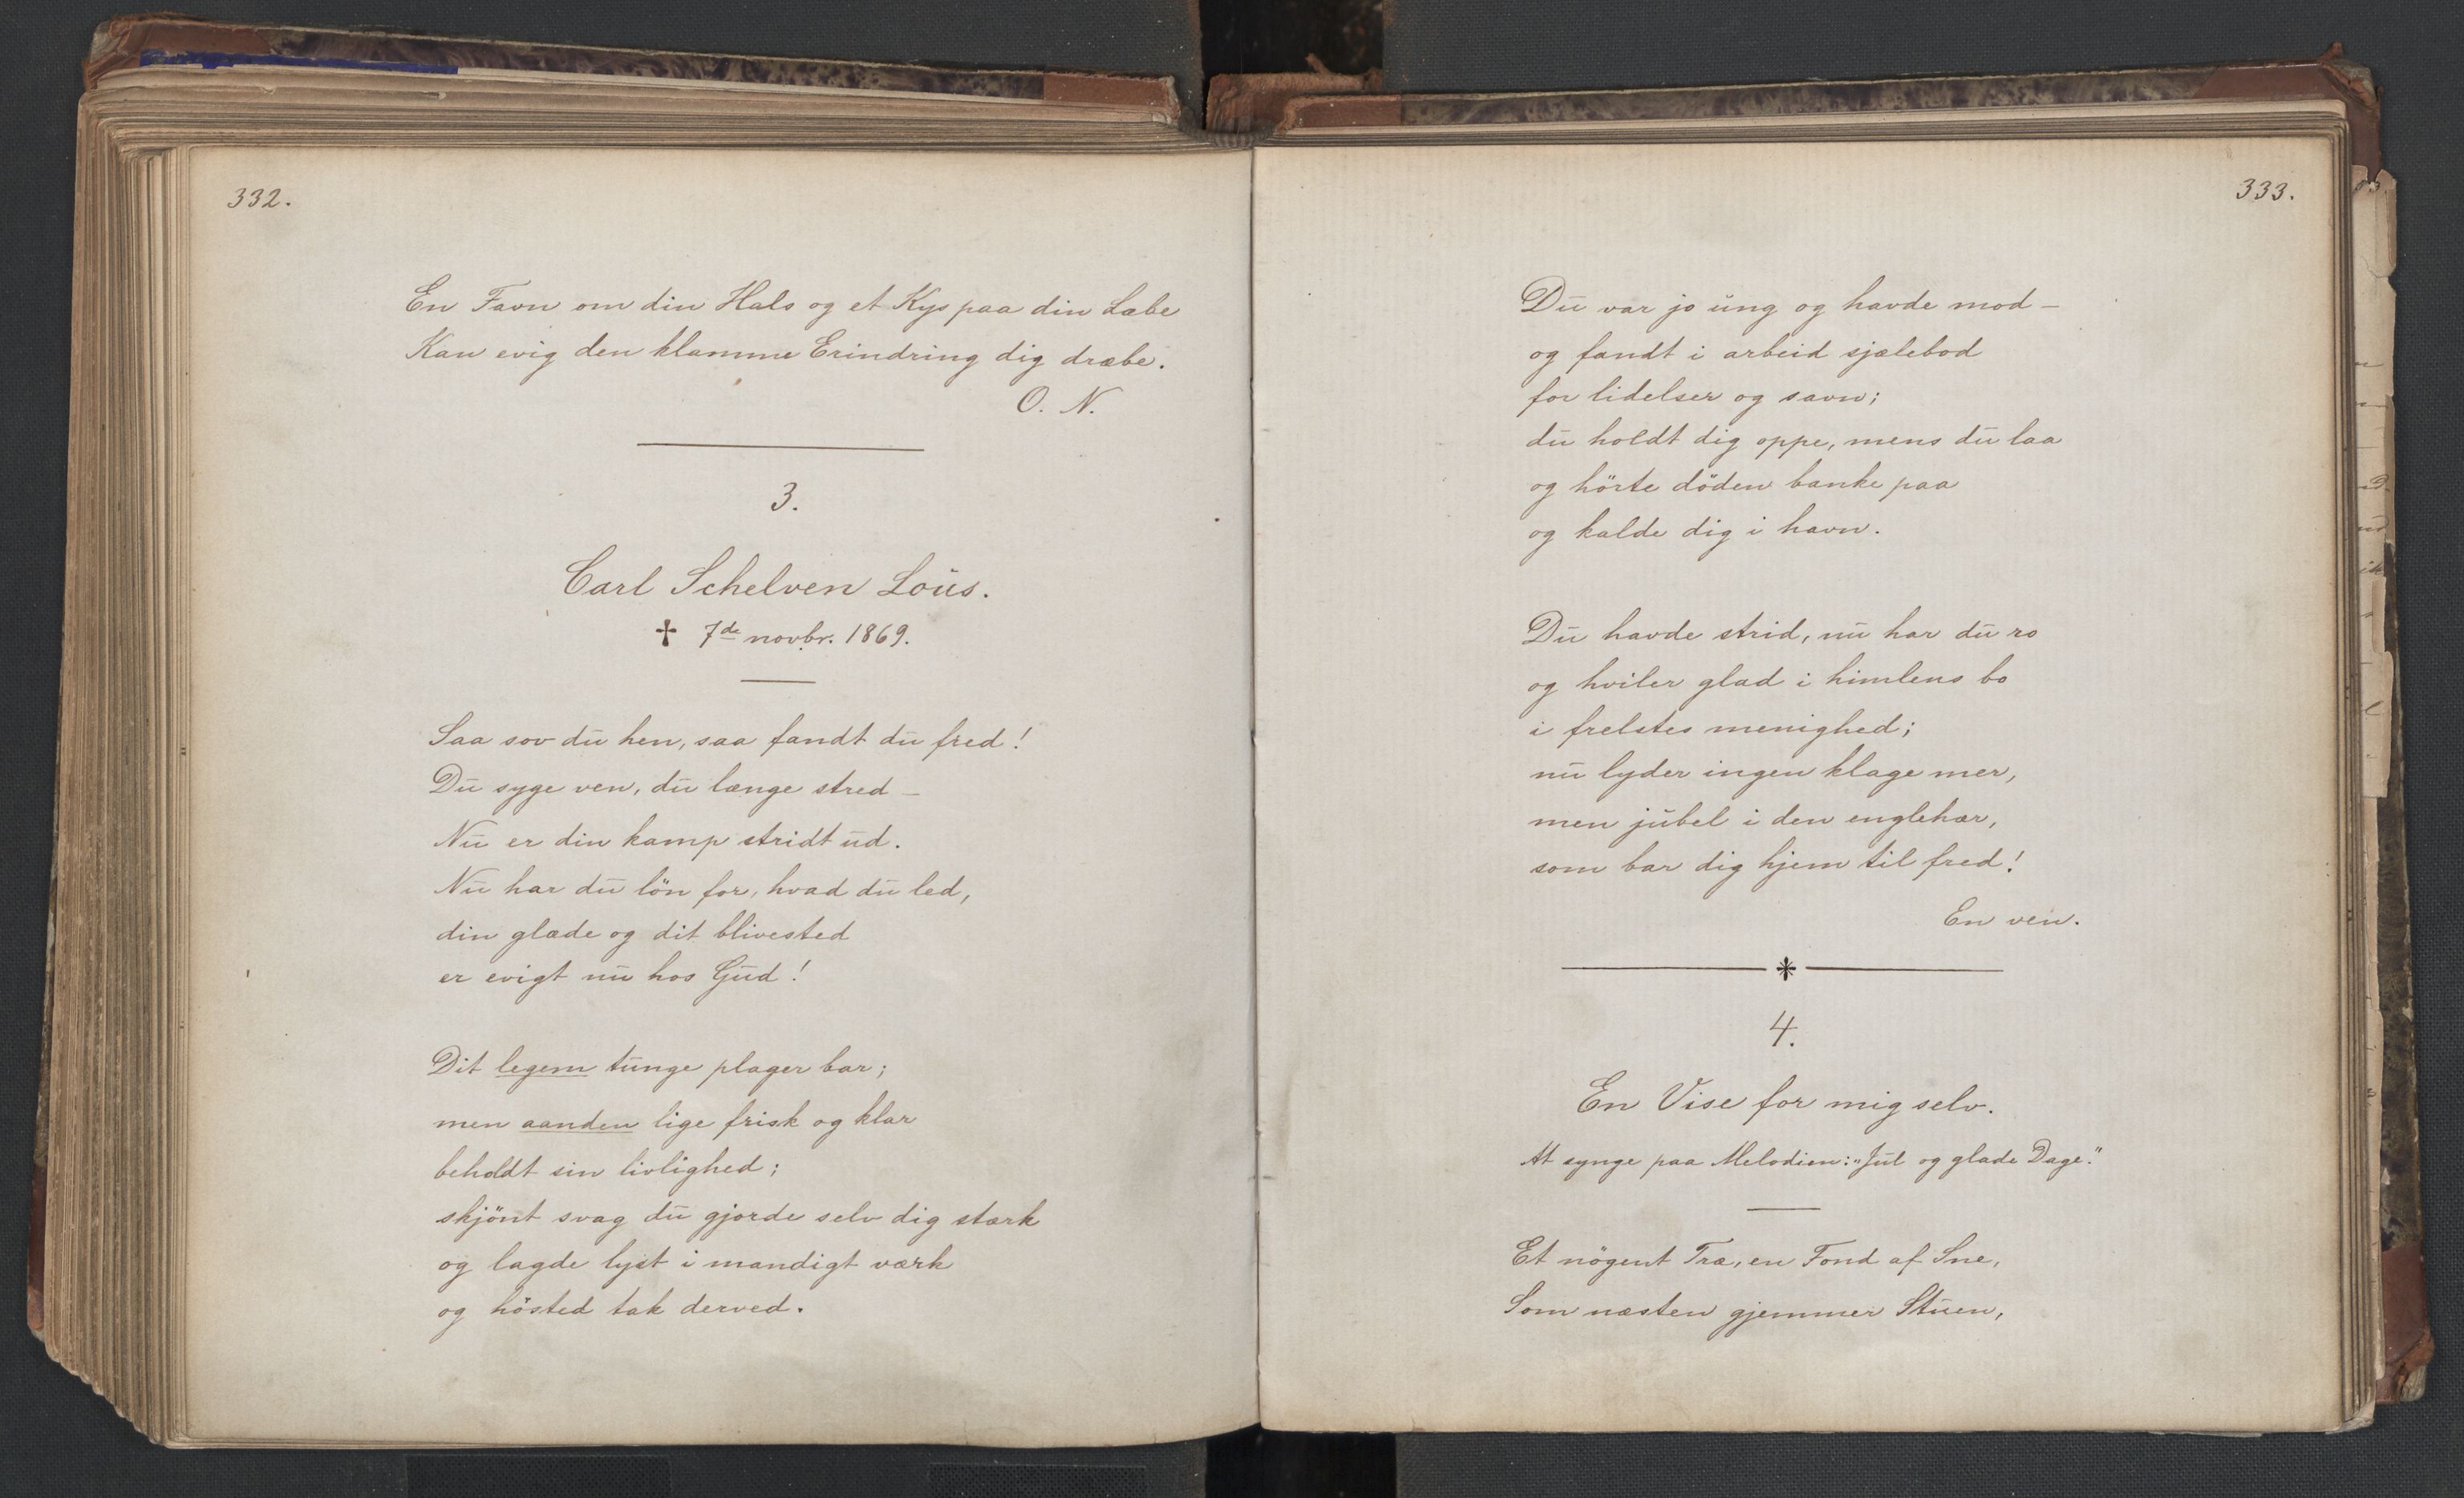 332.
En Favn om din Hals og et Kys paa din Læbe
Kan evig den klamme Erindring dig dræbe.
O. N.
3.
Carl Schelven Lous.
† 7de novbr. 1869.
Saa sov du hen, saa fandt du fred!
Du syge ven, du længe stred –
Nu er din kamp stridt ud.
Nu har du lön for, hvad du led,
din glæde og dit blivested
er evigt nu hos Gud!
Dit legem tunge plager bar;
men aanden lige frisk og klar
beholdt sin livlighed;
skjönt svag du gjorde selv dig stærk
og lagde lyst i mandigt værk
og hösted tak derved.
333.
Du var jo ung og havde mod –
og fandt i arbeid sjælebod
for lidelser og savn;
du holdt dig oppe, mens du laa
og hörte döden banke paa
og kalde dig i havn.
Du havde strid, nu har du ro
og hviler glad i himlens bo
i frelstes menighed;
nu lyder ingen klage mer,
men jubel i den englehær,
som bar dig hjem til fred!
En ven.
4.
En Vise for mig selv.
At synge paa Melodien: "Jul og glade Dage."
Et nögent Træ, en Fond af Sne,
Som næsten gjemmer Stuen,